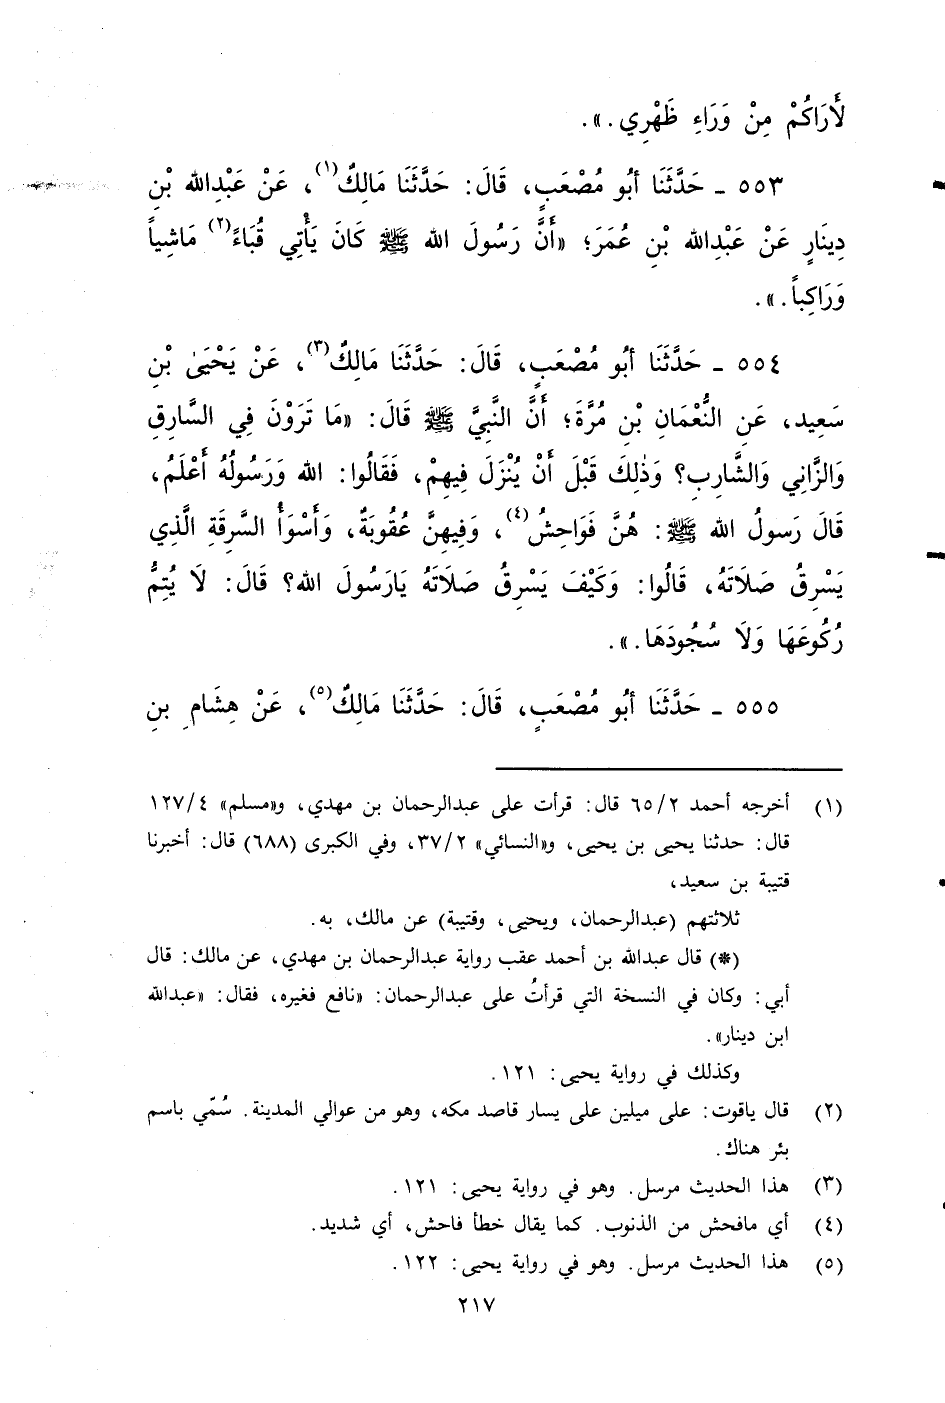 لأَرَاكُمْ مِنْ وَرَاءِ ظَهْرِي.».
٥٥٣ ـ حَدَّثَنَا أبُو مُصْعَبٍ، قَالَ: حَدَّثَنَا مَالِكٌ(١)، عَنْ عَبْدِالله بْنِ
دِينَارٍ عَنْ عَبْدِالله بْنِ عُمَرَ؛ «أَنَّ رَسُولَ الله ﷺ كَانَ يَأْتِي قُبَاءً(٢) مَاشِياً
وَرَاكِباً.».
٥٥٤ ـ حَدَّثَنَا أبُو مُصْعَبٍ، قَالَ: حَدَّثَنَا مَالِكٌ(٣)، عَنْ يَحْيَىٰ بْنِ
سَعِيد، عَنِ النُّعْمَانِ بْنِ مُرَّةَ؛ أَنَّ النَّبِيَّ ﷺ قَالَ: «مَا تَرَوْنَ فِي السَّارِقِ
وَالزَّانِي وَالشَّارِبِ؟ وَذٰلِكَ قَبْلَ أَنْ يُنْزَلَ فِيهِمْ، فَقَالُوا: الله وَرَسُولُهُ أَعْلَمُ،
قَالَ رَسولُ الله ﷺ: هُنَّ فَوَاحِشُ(٤)، وَفِيهِنَّ عُقُوبَةٌ، وَأَسْوَأُ السَّرِقَةِ الَّذِي
يَسْرِقُ صَلَاتَهُ، قَالُوا: وَكَيْفَ يَسْرِقُ صَلَاتَهُ يَارَسُولَ الله؟ قَالَ: لَا يُتِمُّ
رُكُوعَهَا وَلَا سُجُودَهَا.».
٥٥٥ ـ حَدَّثَنَا أبُو مُصْعَبٍ، قَالَ: حَدَّثَنَا مَالِكٌ(٥)، عَنْ هِشَامِ بنِ
(١) أخرجه أحمد ٦٥/٢ قال: قرأت على عبدالرحمان بن مهدي، و«مسلم» ١٢٧/٤
قال: حدثنا يحيى بن يحيى، و«النسائي» ٣٧/٢، وفي الكبرى (٦٨٨) قال: أخبرنا
قتيبة بن سعيد،
ثلاثتهم (عبدالرحمان، ويحيى، وقتيبة) عن مالك، به.
(*) قال عبدالله بن أحمد عقب رواية عبدالرحمان بن مهدي، عن مالك: قال
أبي: وكان في النسخة التي قرأتُ على عبدالرحمان: «نافع فغيره، فقال: «عبدالله
ابن دينار».
وكذلك في رواية يحيى: ١٢١.
(٢) قال ياقوت: على ميلين على يسار قاصد مكه، وهو من عوالي المدينة. سُمّي باسم
بئر هناك.
(٣) هذا الحديث مرسل. وهو في رواية يحيى: ١٢١.
(٤) أي مافحش من الذنوب. كما يقال خطأ فاحش، أي شديد.
(٥) هذا الحديث مرسل. وهو في رواية يحيى: ١٢٢.
٢١٧